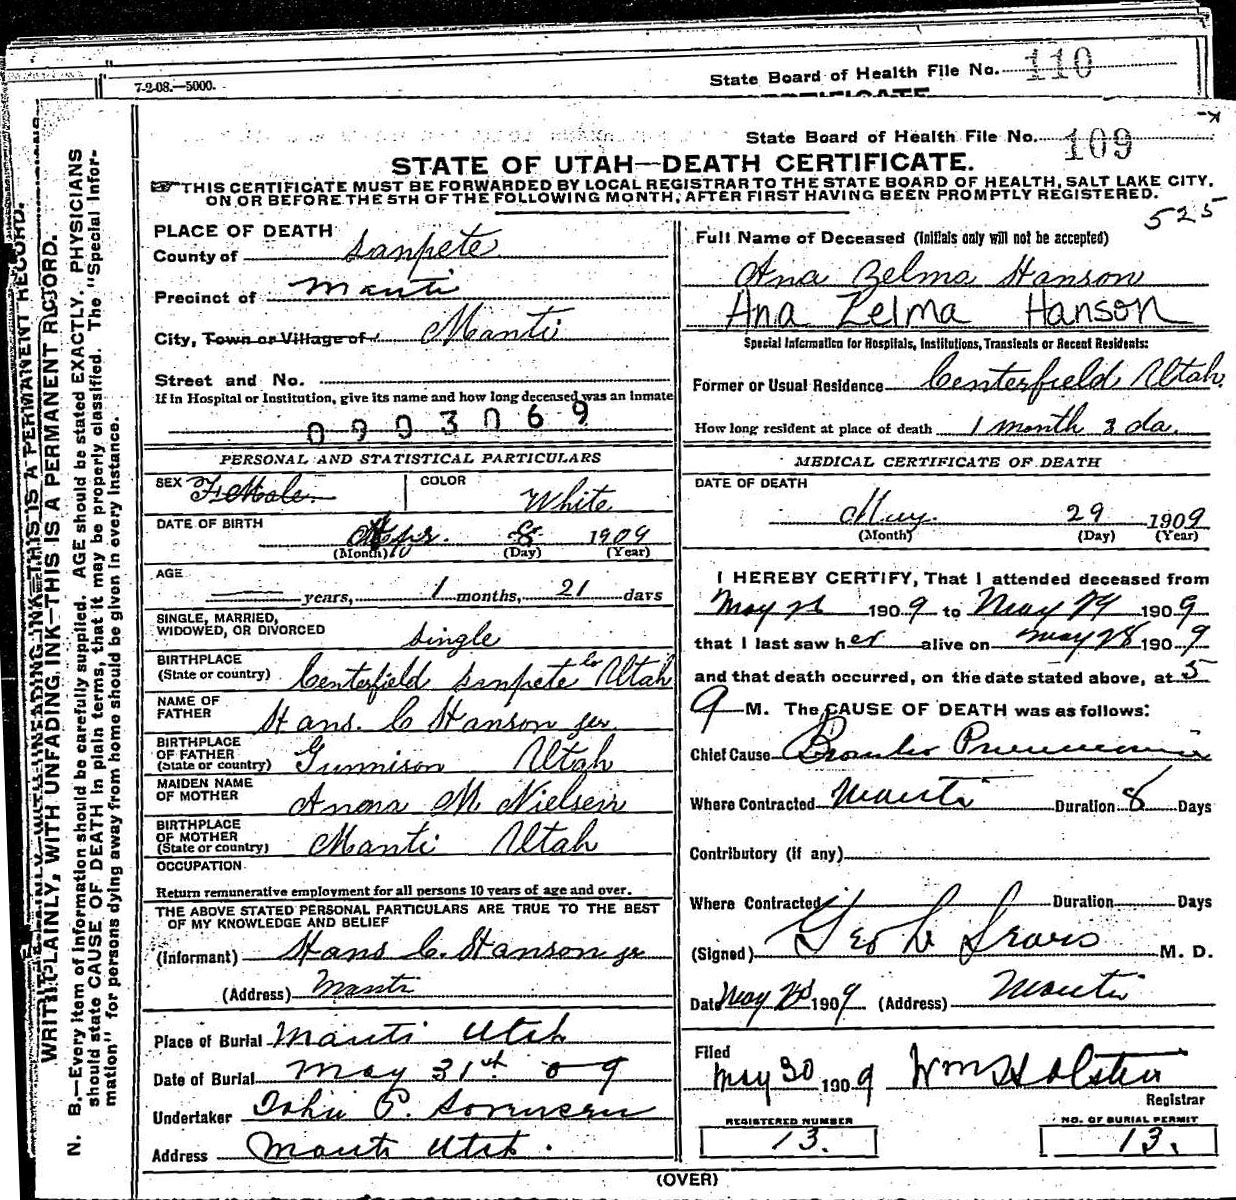 7-2-08.—5000.
State Board of Health File No. 110
State Board of Health File No. 109
STATE OF UTAH—DEATH CERTIFICATE.
THIS CERTIFICATE MUST BE FORWARDED BY LOCAL REGISTRAR TO THE STATE BOARD OF HEALTH, SALT LAKE CITY,
ON OR BEFORE THE 5TH OF THE FOLLOWING MONTH, AFTER FIRST HAVING BEEN PROMPTLY REGISTERED.
525
WRITE PLAINLY, WITH UNFADING INK—THIS IS A PERMANENT RECORD.
N. B.—Every item of information should be carefully supplied. AGE should be stated EXACTLY. PHYSICIANS
should state CAUSE OF DEATH in plain terms, that it may be properly classified. The "Special Infor-
mation" for persons dying away from home should be given in every instance.
PLACE OF DEATH
County of Sanpete
Precinct of Manti
City, Town or Village of Manti
Street and No.
If in Hospital or Institution, give its name and how long deceased was an inmate
0903069
PERSONAL AND STATISTICAL PARTICULARS
SEX Female
COLOR White
DATE OF BIRTH Apr. 8 1909
(Month) (Day) (Year)
AGE
years, 1 months, 21 days
SINGLE, MARRIED,
WIDOWED, OR DIVORCED single
BIRTHPLACE
(State or country) Centerfield Sanpete Co Utah
NAME OF
FATHER Hans. C Hanson jer
BIRTHPLACE
OF FATHER
(State or country) Gunnison Utah
MAIDEN NAME
OF MOTHER Anora M. Nielsen
BIRTHPLACE
OF MOTHER
(State or country) Manti Utah
OCCUPATION
Return remunerative employment for all persons 10 years of age and over.
THE ABOVE STATED PERSONAL PARTICULARS ARE TRUE TO THE BEST
OF MY KNOWLEDGE AND BELIEF
(Informant) Hans C. Hanson jr
(Address) Manti
Place of Burial Manti Utah
Date of Burial May 31st 09
Undertaker John P. Sorensen
Address Manti Utah.
Full Name of Deceased (Initials only will not be accepted)
Ana Zelma Hanson
Ana Zelma Hanson
Special Information for Hospitals, Institutions, Transients or Recent Residents:
Former or Usual Residence Centerfield Utah
How long resident at place of death 1 month 3 da.
MEDICAL CERTIFICATE OF DEATH
DATE OF DEATH
May. 29 1909
(Month) (Day) (Year)
I HEREBY CERTIFY, That I attended deceased from
May 1909 to May 29 1909
that I last saw her alive on May 28 1909
and that death occurred, on the date stated above, at 5
M. The CAUSE OF DEATH was as follows:
Chief Cause Broncho Pneumonia
Where Contracted Manti Duration 8 Days
Contributory (if any)
Where Contracted Duration Days
(Signed) Geo L Sears M. D.
Date May 1909 (Address) Manti
Filed
May 30 1909 Wm Holsten
Registrar
REGISTERED NUMBER
13.
NO. OF BURIAL PERMIT
13.
(OVER)